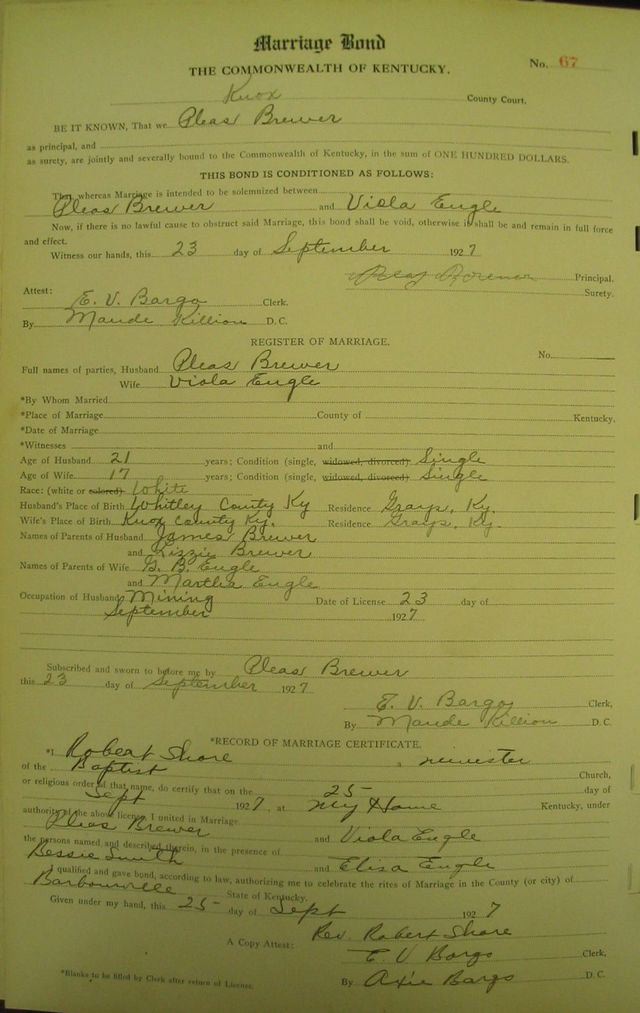 Marriage Bond
THE COMMONWEALTH OF KENTUCKY.
No. 67
Knox County Court.
BE IT KNOWN, That we Pleas Brewer
as principal, and
as surety, are jointly and severally bound to the Commonwealth of Kentucky, in the sum of ONE HUNDRED DOLLARS.
THIS BOND IS CONDITIONED AS FOLLOWS:
That whereas Marriage is intended to be solemnized between
Pleas Brewer and Viola Engle
Now, if there is no lawful cause to obstruct said Marriage, this bond shall be void, otherwise it shall be and remain in full force
and effect.
Witness our hands, this 23 day of September 1927
Pleas Brewer Principal.
Surety.
Attest:
E. V. Bargo Clerk.
By Maude Killion D. C.
REGISTER OF MARRIAGE.
No.
Full names of parties, Husband Pleas Brewer
Wife Viola Engle
*By Whom Married
*Place of Marriage County of Kentucky.
*Date of Marriage
*Witnesses and
Age of Husband 21 years; Condition (single, widowed, divorced) Single
Age of Wife 17 years; Condition (single, widowed, divorced) Single
Race: (white or colored) White
Husband's Place of Birth Whitley County Ky Residence Grays, Ky.
Wife's Place of Birth Knox County Ky. Residence Grays, Ky.
Names of Parents of Husband James Brewer
and Lizzie Brewer
Names of Parents of Wife G. B. Engle
and Martha Engle
Occupation of Husband Mining Date of License 23 day of
September 1927
Subscribed and sworn to before me by Pleas Brewer
this 23 day of September 1927
E. V. Bargo Clerk,
By Maude Killion D. C.
*RECORD OF MARRIAGE CERTIFICATE.
*I Robert Shore a minister
of the Baptist Church,
or religious order of that name, do certify that on the 25 day of
Sept 1927, at My Home Kentucky, under
authority of the above license, I united in Marriage
Pleas Brewer and Viola Engle
the persons named and described therein, in the presence of
Bessie Smith and Elisa Engle
I qualified and gave bond, according to law, authorizing me to celebrate the rites of Marriage in the County (or city) of
Barbourville State of Kentucky.
Given under my hand, this 25 day of Sept 1927
Rev. Robert Shore
A Copy Attest: E. V Bargo Clerk,
By Axie Bargo D. C.
*Blanks to be filled by Clerk after return of License.